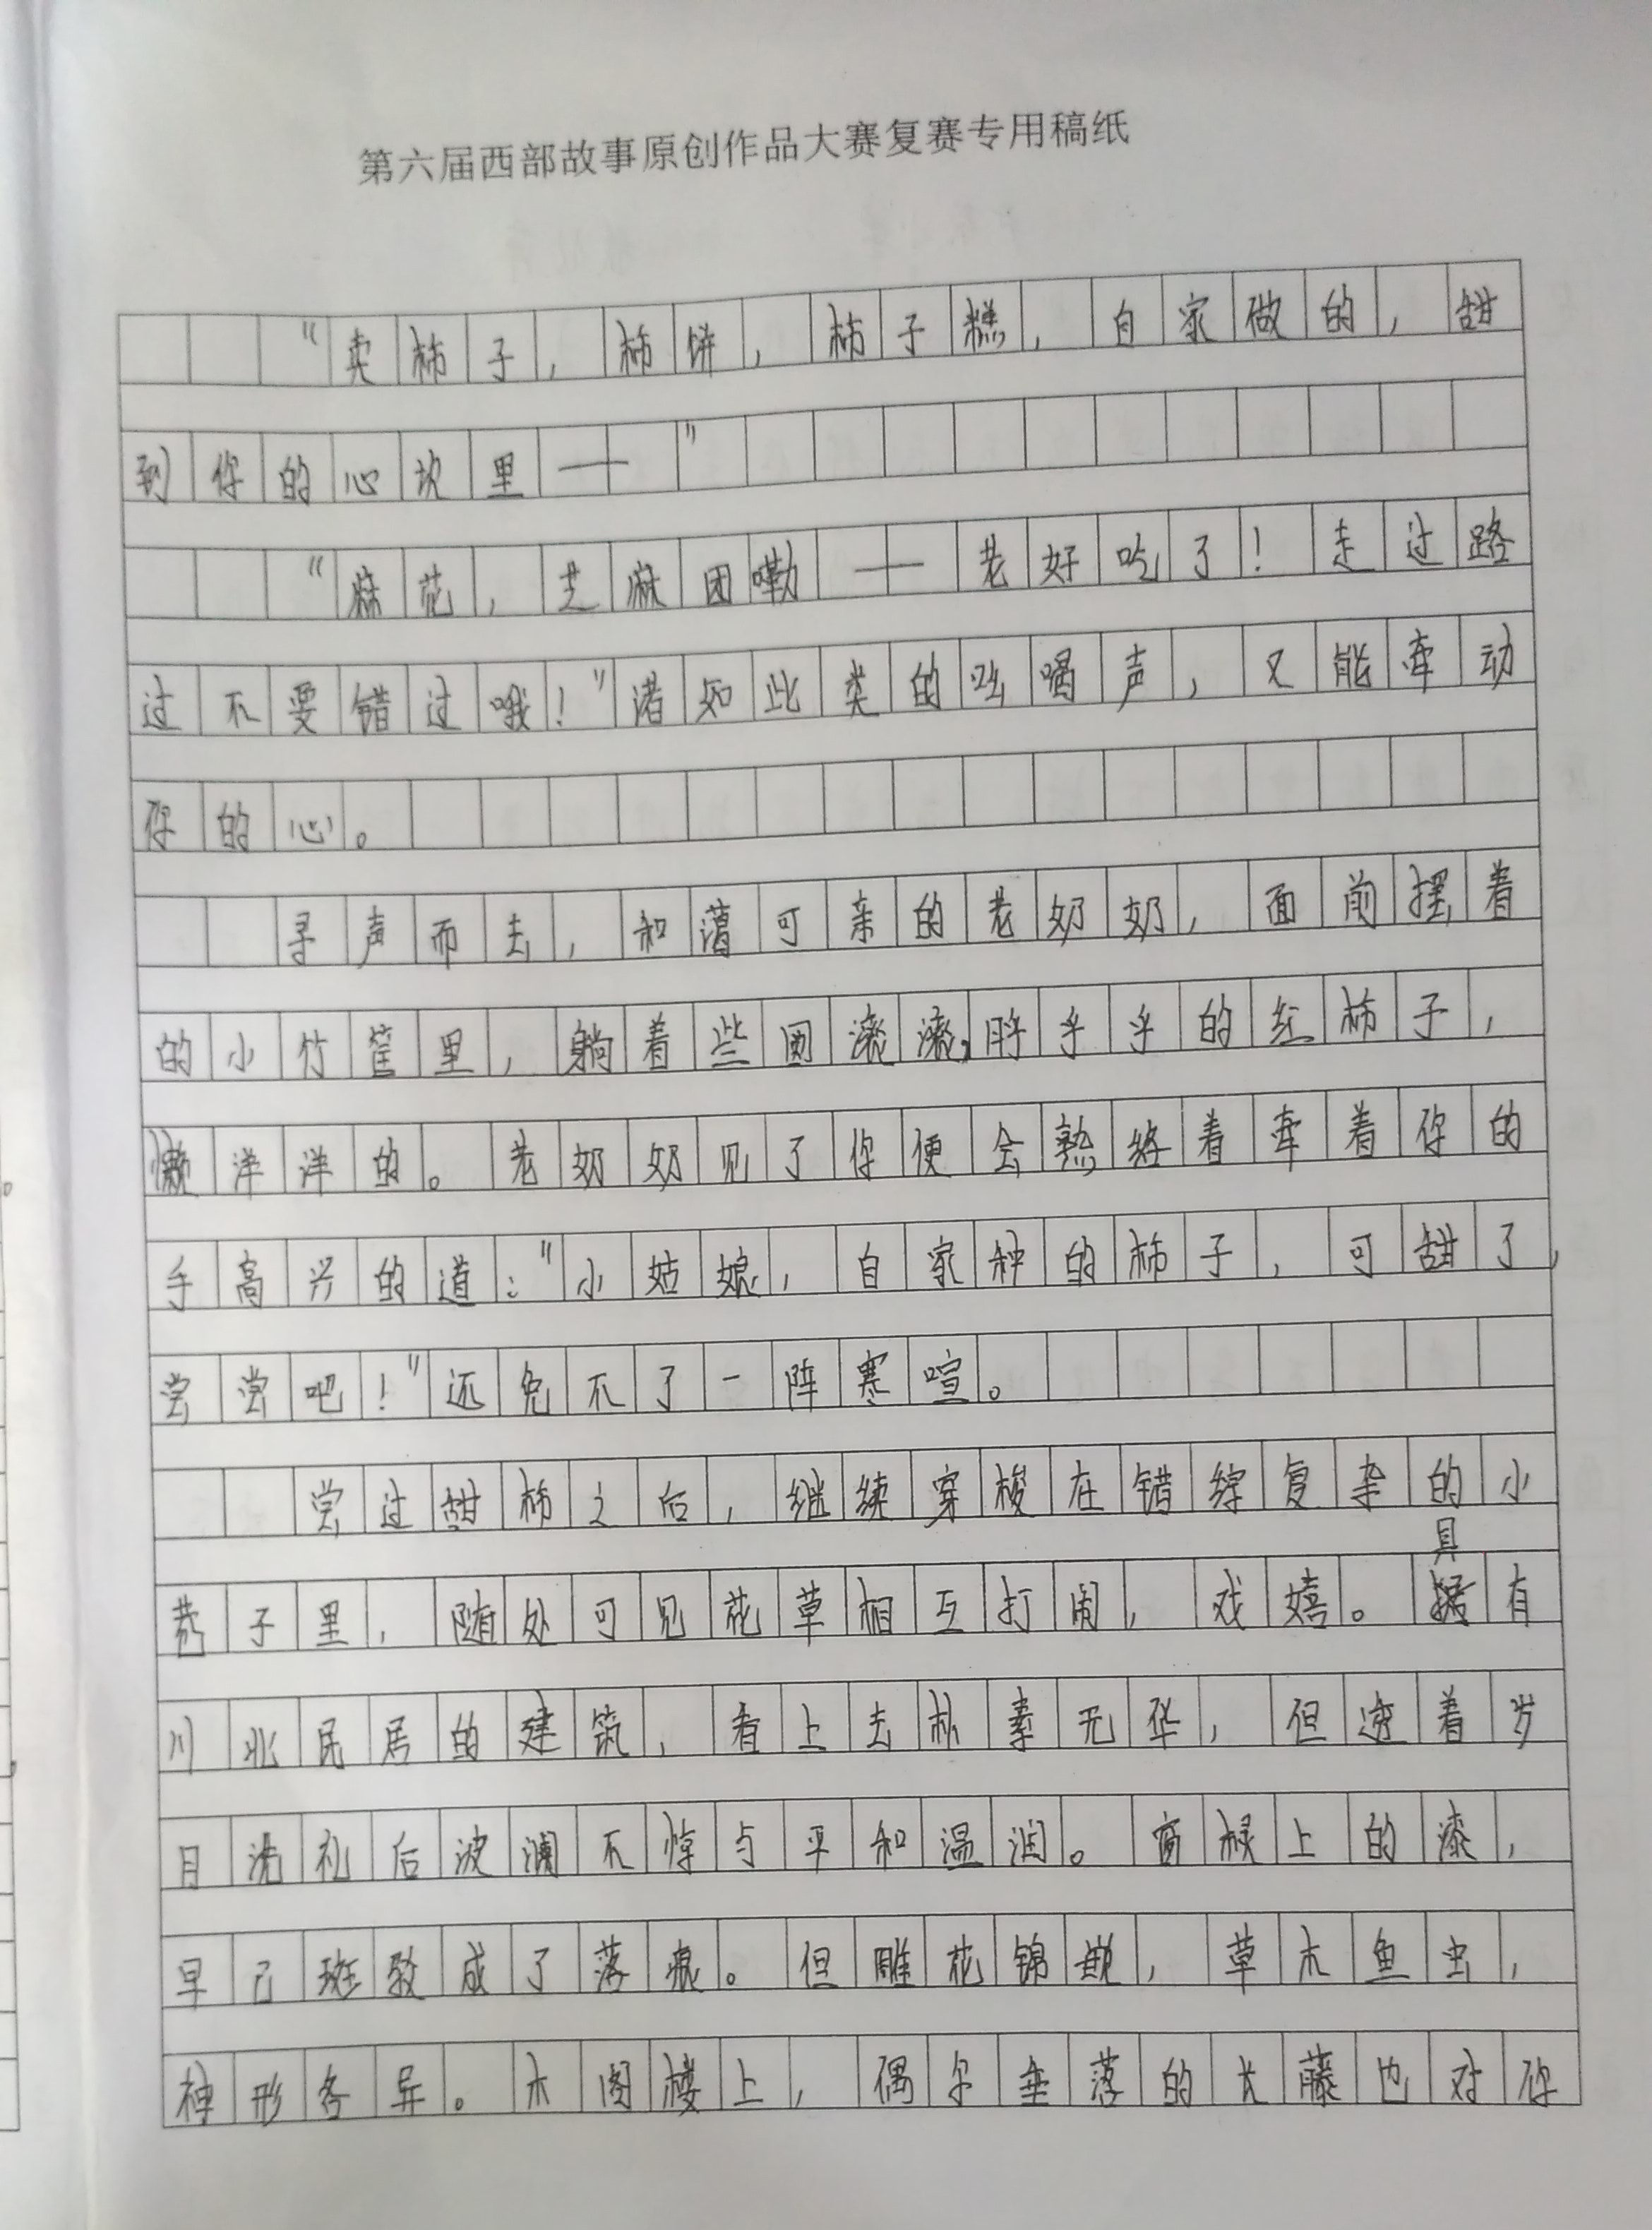 第六届西部故事原创作品大赛复赛专用稿纸
“卖柿子，柿饼，柿子糕，自家做的，甜
到你的心坎里——”
“麻花，芝麻团嘞——老好吃了！走过路
过不要错过哦！”诸如此类的吆喝声，又能牵动
你的心。
寻声而去，和蔼可亲的老奶奶，面前摆着
的小竹筐里，躺着些圆滚滚，胖乎乎的红柿子，
懒洋洋的。老奶奶见了你便会熟络着牵着你的
手高兴的道：“小姑娘，自家种的柿子，可甜了，
尝尝吧！”还免不了一阵寒喧。
尝过甜柿之后，继续穿梭在错综复杂的小
巷子里，随处可见花草相互打闹，戏嬉。具有
川北民居的建筑，看上去朴素无华，但透着岁
月洗礼后波澜不惊与平和温润。窗棂上的漆，
早已斑驳成了落痕。但雕花锦嵌，草木鱼虫，
神形各异。木阁楼上，偶尔垂落的长藤也对你